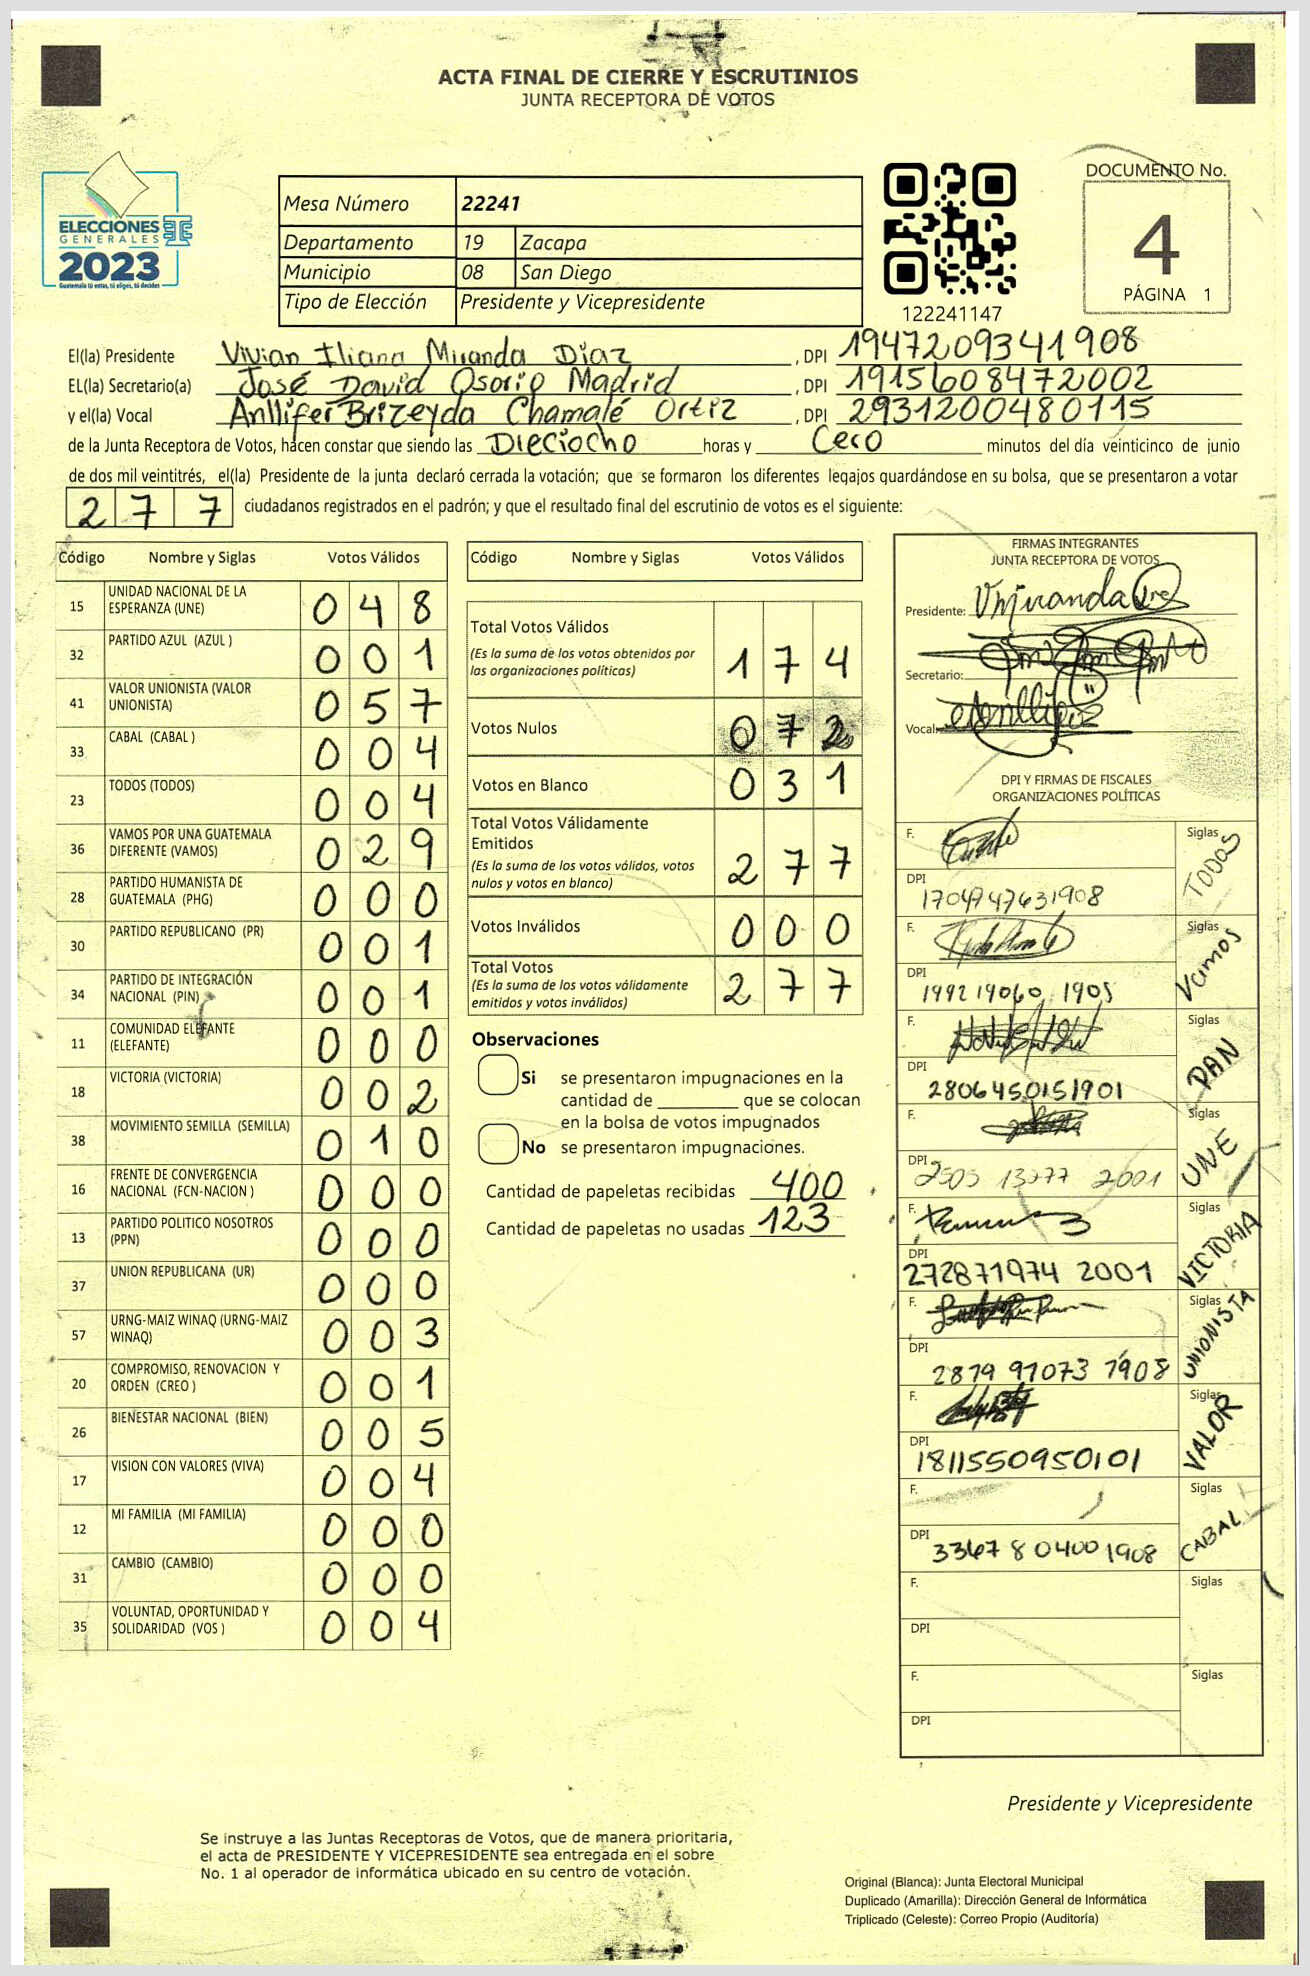 ACTA FINAL DE CIERRE Y ESCRUTINIOS
JUNTA RECEPTORA DE VOTOS
ELECCIONES
GENERALES
2023
Guatemala tú votas, tú eliges, tú decides
Mesa Número 22241
Departamento 19 Zacapa
Municipio 08 San Diego
Tipo de Elección Presidente y Vicepresidente
122241147
DOCUMENTO No.
4
PÁGINA 1
El(la) Presidente Vivian Iliana Miranda Díaz, DPI 1947209341908
EL(la) Secretario(a) José David Osorio Madrid, DPI 1915608472002
y el(la) Vocal Anllifer Brizeyda Chamalé Ortiz, DPI 2931200480115
de la Junta Receptora de Votos, hacen constar que siendo las Dieciocho horas y Cero minutos del día veinticinco de junio
de dos mil veintitrés, el(la) Presidente de la junta declaró cerrada la votación; que se formaron los diferentes legajos guardándose en su bolsa, que se presentaron a votar
277 ciudadanos registrados en el padrón; y que el resultado final del escrutinio de votos es el siguiente:
Código Nombre y Siglas Votos Válidos
15 UNIDAD NACIONAL DE LA ESPERANZA (UNE) 048
32 PARTIDO AZUL (AZUL ) 001
41 VALOR UNIONISTA (VALOR UNIONISTA) 057
33 CABAL (CABAL ) 004
23 TODOS (TODOS) 004
36 VAMOS POR UNA GUATEMALA DIFERENTE (VAMOS) 029
28 PARTIDO HUMANISTA DE GUATEMALA (PHG) 000
30 PARTIDO REPUBLICANO (PR) 001
34 PARTIDO DE INTEGRACIÓN NACIONAL (PIN) 001
11 COMUNIDAD ELEFANTE (ELEFANTE) 000
18 VICTORIA (VICTORIA) 002
38 MOVIMIENTO SEMILLA (SEMILLA) 010
16 FRENTE DE CONVERGENCIA NACIONAL (FCN-NACION ) 000
13 PARTIDO POLITICO NOSOTROS (PPN) 000
37 UNION REPUBLICANA (UR) 000
57 URNG-MAIZ WINAQ (URNG-MAIZ WINAQ) 003
20 COMPROMISO, RENOVACION Y ORDEN (CREO ) 001
26 BIENESTAR NACIONAL (BIEN) 005
17 VISION CON VALORES (VIVA) 004
12 MI FAMILIA (MI FAMILIA) 000
31 CAMBIO (CAMBIO) 000
35 VOLUNTAD, OPORTUNIDAD Y SOLIDARIDAD (VOS ) 004
Código Nombre y Siglas Votos Válidos
Total Votos Válidos 174
(Es la suma de los votos obtenidos por
las organizaciones políticas)
Votos Nulos 072
Votos en Blanco 031
Total Votos Válidamente
Emitidos 277
(Es la suma de los votos válidos, votos
nulos y votos en blanco)
Votos Inválidos 000
Total Votos 277
(Es la suma de los votos válidamente
emitidos y votos inválidos)
Observaciones
Si se presentaron impugnaciones en la
cantidad de ________ que se colocan
en la bolsa de votos impugnados
No se presentaron impugnaciones.
Cantidad de papeletas recibidas 400
Cantidad de papeletas no usadas 123
FIRMAS INTEGRANTES
JUNTA RECEPTORA DE VOTOS
Presidente: Vmiranda
Secretario:
Vocal:
DPI Y FIRMAS DE FISCALES
ORGANIZACIONES POLÍTICAS
F. Siglas TODOS
DPI 1704947631908
F. Siglas Vamos
DPI 1992 19060 1905
F. Siglas PAN
DPI 2806450151901
F. Siglas UNE
DPI 2505 13977 2001
F. Siglas VICTORIA
DPI 272871974 2001
F. Siglas UNIONISTA
DPI 2879 97073 1908
F. Siglas VALOR
DPI 1811550950101
F. Siglas CABAL
DPI 3367 8 0400 1908
F. Siglas
DPI
F. Siglas
DPI
Presidente y Vicepresidente
Se instruye a las Juntas Receptoras de Votos, que de manera prioritaria,
el acta de PRESIDENTE Y VICEPRESIDENTE sea entregada en el sobre
No. 1 al operador de informática ubicado en su centro de votación.
Original (Blanca): Junta Electoral Municipal
Duplicado (Amarilla): Dirección General de Informática
Triplicado (Celeste): Correo Propio (Auditoría)